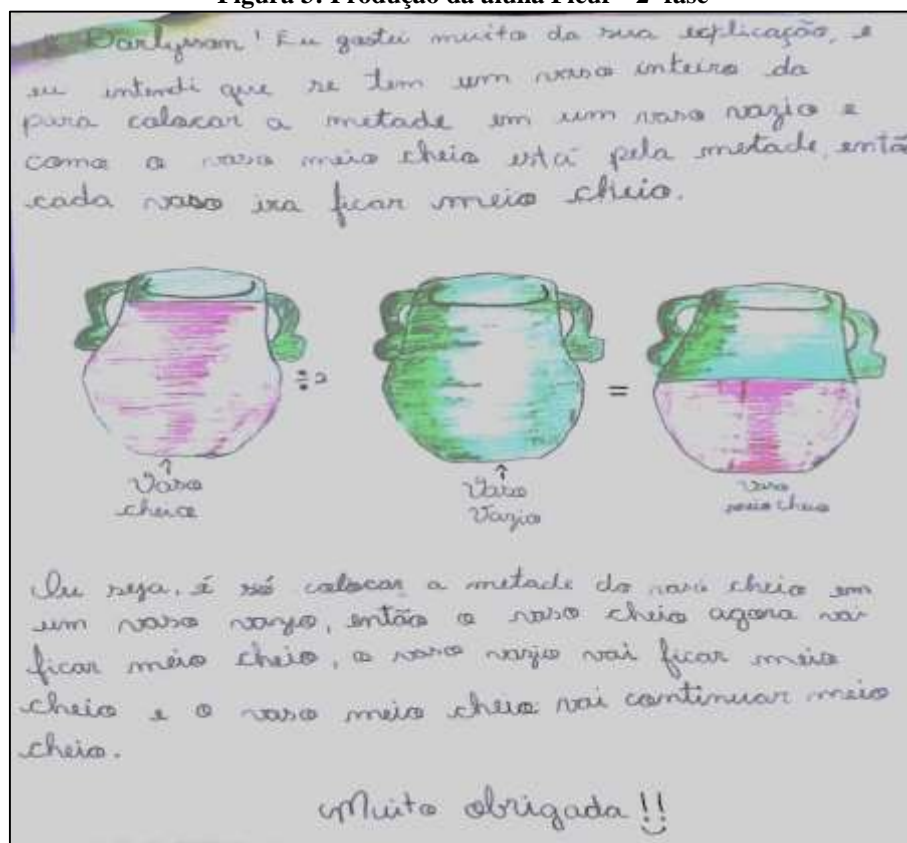 Figura 5: Produção da aluna Ficur – 2ª fase
Darlysson! Eu gostei muito da sua explicação, e
eu intendi que se tem um vaso inteiro da
para colocar a metade em um vaso vazio e
como o vaso meio cheio está pela metade, entã
cada vaso ira ficar meio cheio.
÷ 2
=
Vaso
cheio
Vaso
Vazio
Vaso
meio cheio
Ou seja, é só colocar a metade do vaso cheio em
um vaso vazio, então o vaso cheio agora vai
ficar meio cheio, o vaso vazio vai ficar meio
cheio e o vaso meio cheio vai continuar meio
cheio.
Muito obrigada!!